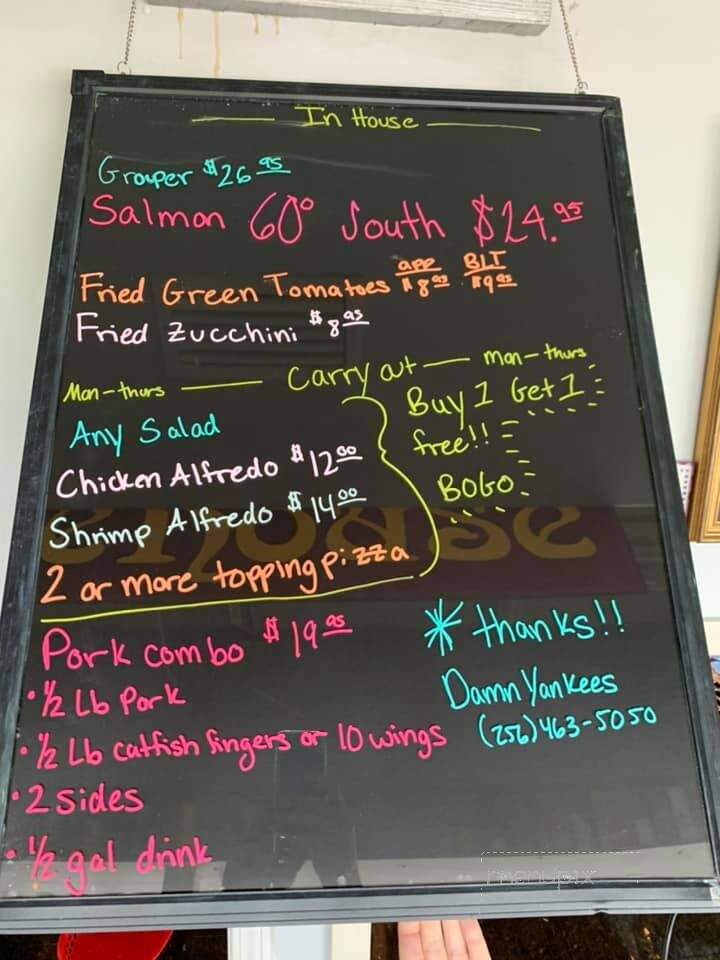 In House
Grouper $26.95
Salmon 60° South $24.95
Fried Green Tomatoes app $8.95 BLT $9.95
Fried Zucchini $8.95
Mon-thurs Carry out mon-thurs
Any Salad
Chicken Alfredo $12.00
Shrimp Alfredo $14.00
2 or more topping pizza
Buy 1 Get 1
free!!
BOGO
Pork combo $19.95
• 1/2 Lb Pork
• 1/2 Lb catfish fingers or 10 wings
• 2 sides
• 1/2 gal drink
* thanks!!
Damn Yankees
(256)463-5050
menupix